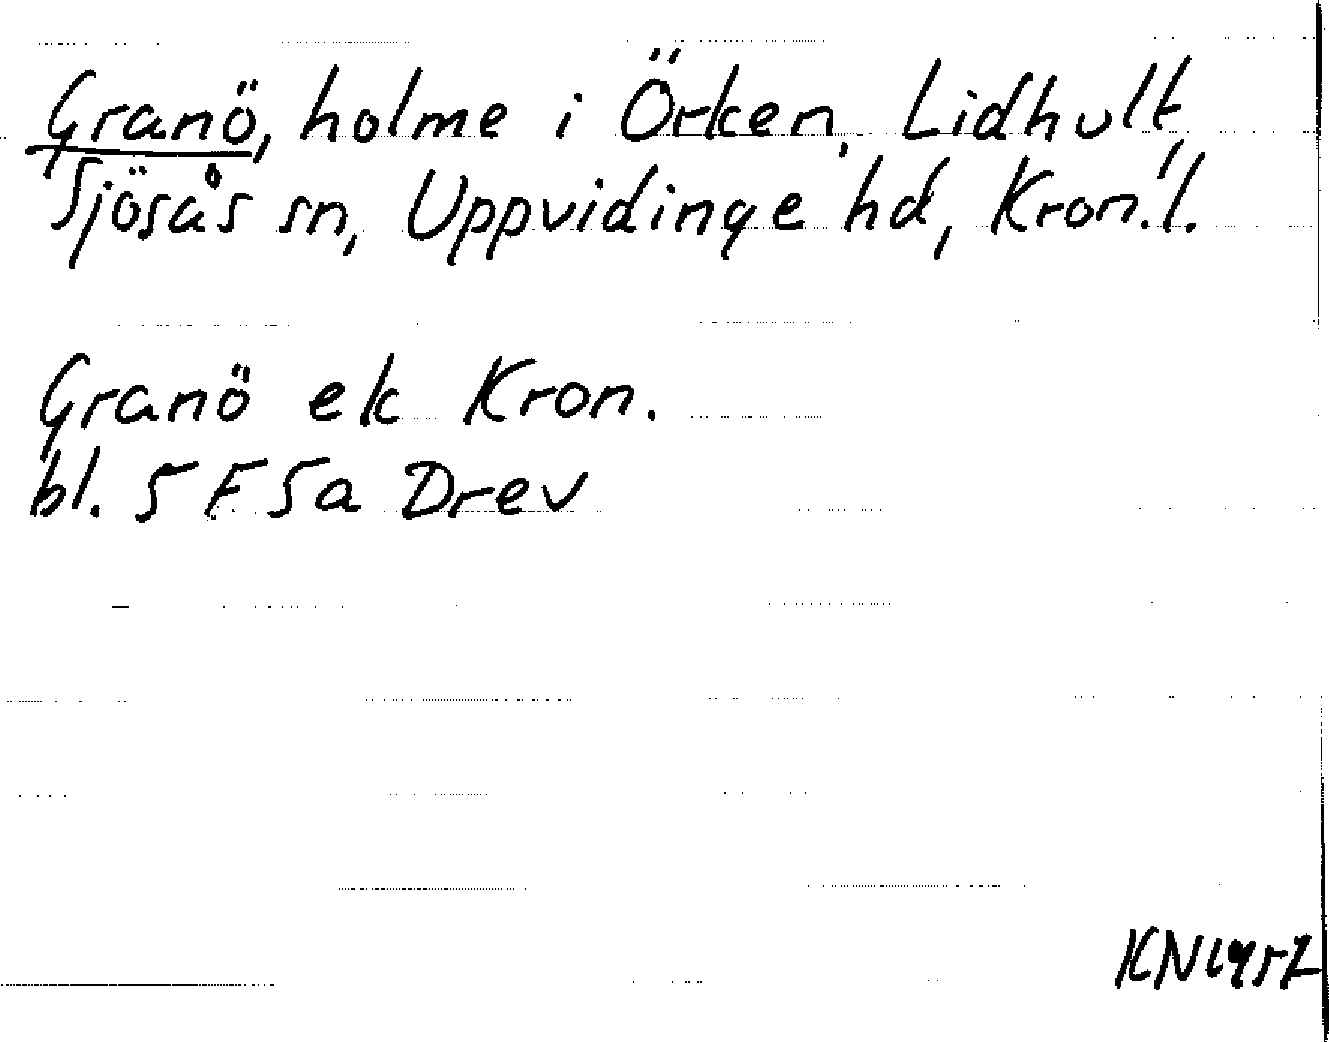 Granö, holme i Örken, Lidhult,
Sjösås sn, Uppvidinge hd, Kron.l.
Granö ek Kron.
bl. 5 F 5a Drev
KN 1957